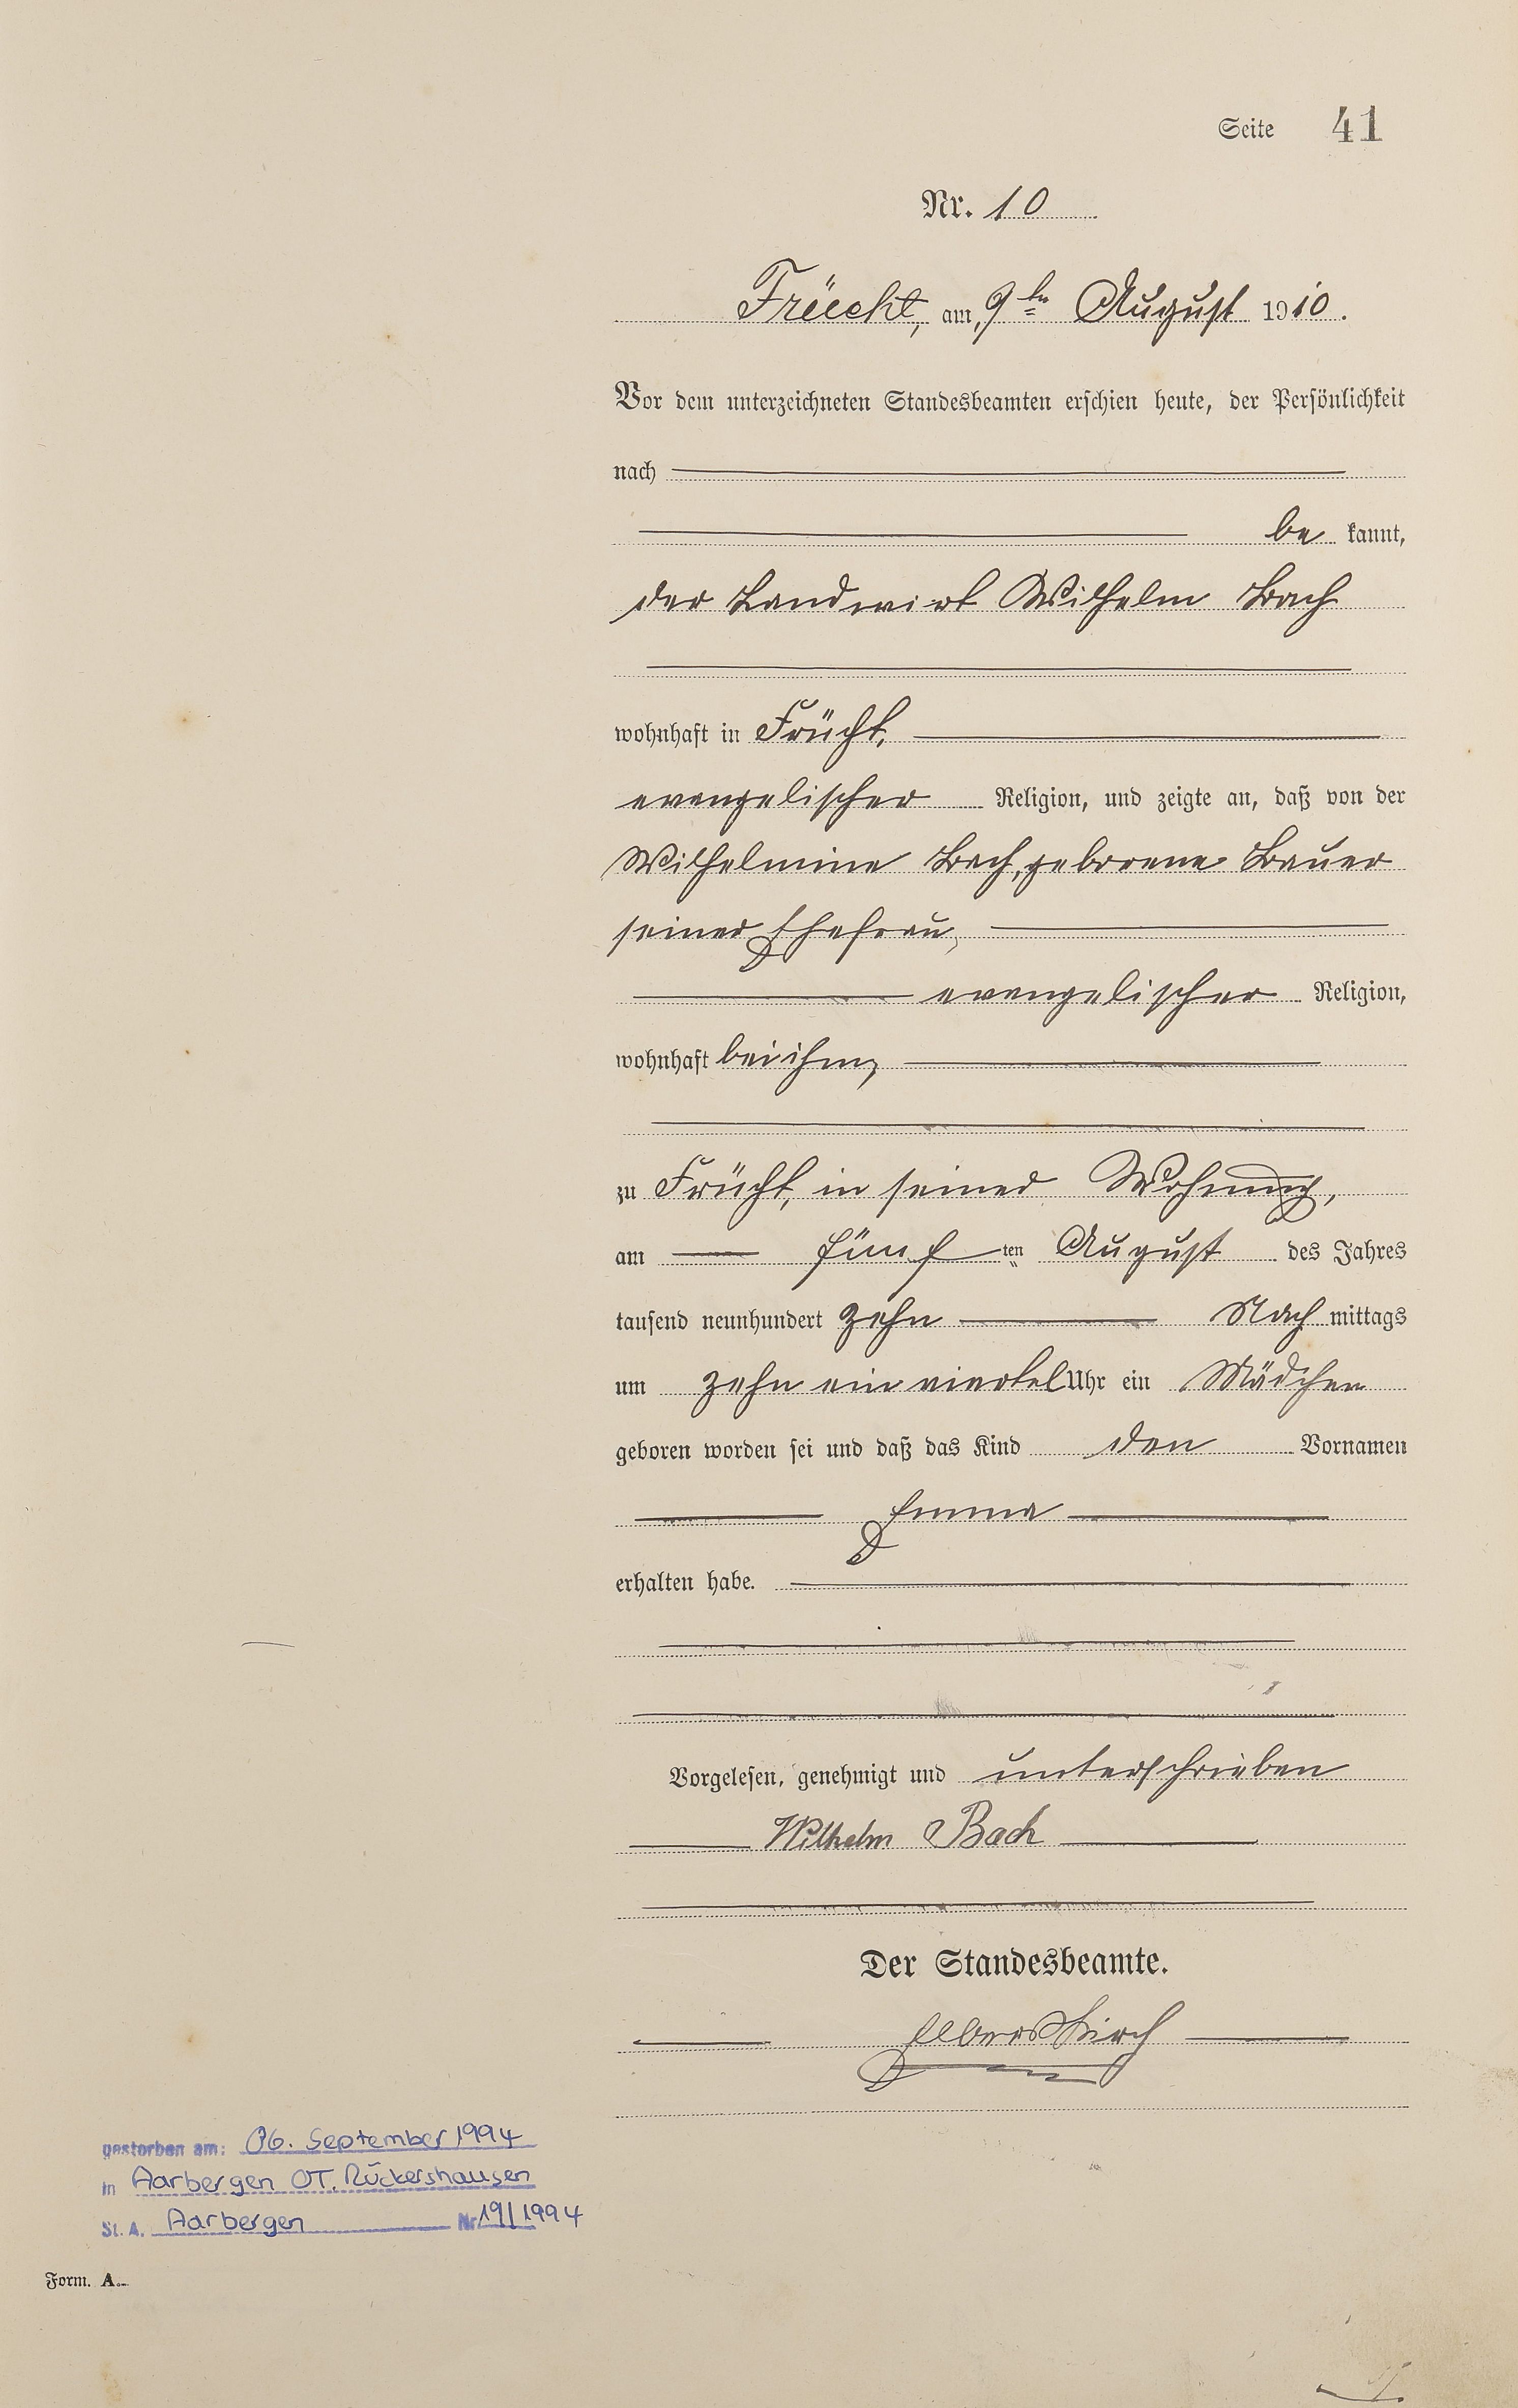 Seite 41
Nr. 10
Frücht, am 9ten August 1910.
Vor dem unterzeichneten Standesbeamten erschien heute, der Persönlichkeit
nach
be kannt,
der Landwirt Wilhelm Bach
wohnhaft in Frücht,
evangelischer Religion, und zeigte an, daß von der
Wilhelmine Bach, geborene Bauer
seiner Ehefrau,
evangelischer Religion,
wohnhaft bei ihm,
zu Frücht, in seiner Wohnung,
am fünf ten August des Jahres
tausend neunhundert zehn Nach mittags
um zehn ein viertel Uhr ein Mädchen
geboren worden sei und daß das Kind den Vornamen
Emma
erhalten habe.
Vorgelesen, genehmigt und unterschrieben
Wilhelm Bach
Der Standesbeamte.
Elberskirch
gestorben am: 06. September 1994
in Aarbergen OT. Rückershausen
St. A. Aarbergen Nr. 19/1994
Form. A.